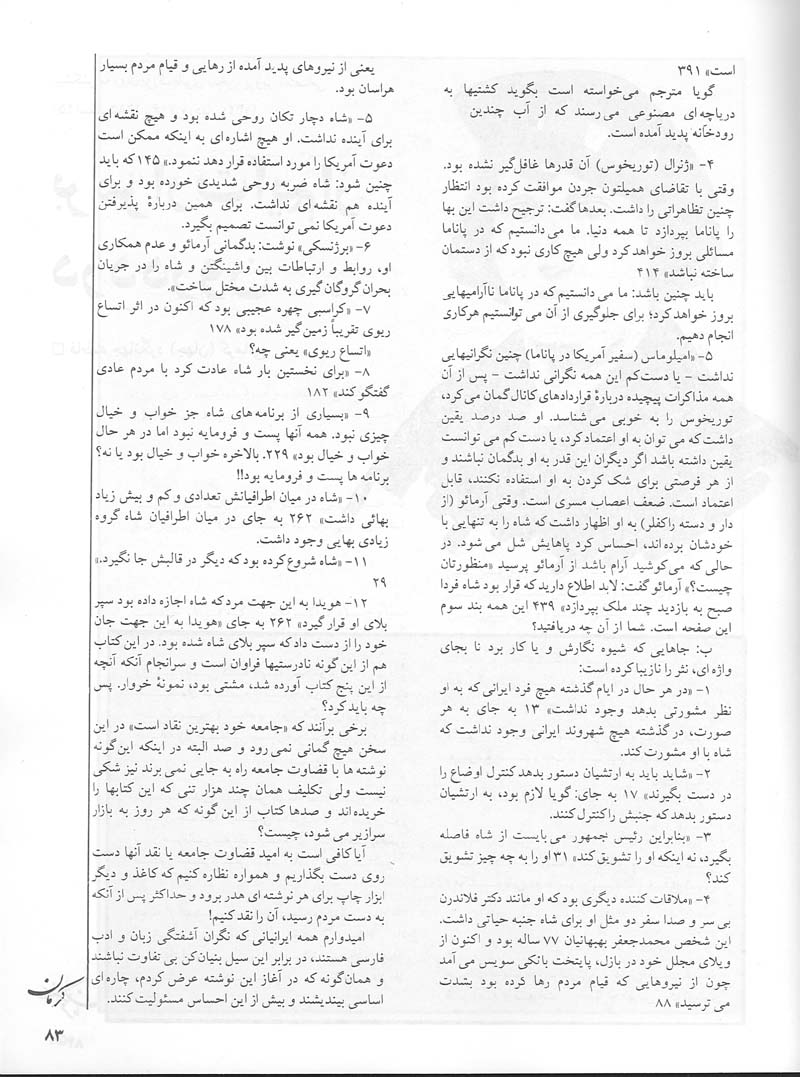 است» ۳۹۱
گویا مترجم می‌خواسته است بگوید کشتیها به
دریاچه‌ای مصنوعی می‌رسند که از آب چندین
رودخانه پدید آمده است.
۴- «ژنرال (توریخوس) آن قدرها غافل‌گیر نشده بود.
وقتی با تقاضای همیلتون جردن موافقت کرده بود انتظار
چنین تظاهراتی را داشت. بعدها گفت: ترجیح داشت این بها
را پاناما بپردازد تا همه دنیا. ما می‌دانستیم که در پاناما
مسائلی بروز خواهد کرد ولی هیچ کاری نبود که از دستمان
ساخته نباشد» ۴۱۴
باید چنین باشد: ما می‌دانستیم که در پاناما ناآرامیهایی
بروز خواهد کرد؛ برای جلوگیری از آن می‌توانستیم هرکاری
انجام دهیم.
۵- «امیلوماس (سفیر آمریکا در پاناما) چنین نگرانیهایی
نداشت – یا دست‌کم این همه نگرانی نداشت – پس از آن
همه مذاکرات پیچیده دربارهٔ قراردادهای کانال گمان می‌کرد،
توریخوس را به خوبی می‌شناسد. او صد درصد یقین
داشت که می توان به او اعتماد کرد، یا دست کم می توانست
یقین داشته باشد اگر دیگران این قدر به او بدگمان نباشند و
از هر فرصتی برای شک کردن به او استفاده نکنند، قابل
اعتماد است. ضعف اعصاب مسری است. وقتی آرمائو (از
دار و دسته راکفلر) به او اظهار داشت که شاه را به تنهایی با
خودشان برده‌اند، احساس کرد پاهایش شل می‌شود. در
حالی که می‌کوشید آرام باشد از آرمائو پرسید «منظورتان
چیست؟» آرمائو گفت: لابد اطلاع دارید که قرار بود شاه فردا
صبح به بازدید چند ملک بپردازد» ۴۳۹ این همه بند سوم
این صفحه است. شما از آن چه دریافتید؟
ب: جاهایی که شیوه نگارش و یا کار برد نا بجای
واژه‌ای، نثر را نازیبا کرده است:
۱- «در هر حال در ایام گذشته هیچ فرد ایرانی که به او
نظر مشورتی بدهد وجود نداشت» ۱۳ به جای به هر
صورت، در گذشته هیچ شهروند ایرانی وجود نداشت که
شاه با او مشورت کند.
۲- «شاید باید به ارتشیان دستور بدهد کنترل اوضاع را
در دست بگیرند» ۱۷ به جای: گویا لازم بود، به ارتشیان
دستور بدهد که جنبش را کنترل کنند.
۳- «بنابراین رئیس جمهور می‌بایست از شاه فاصله
بگیرد، نه اینکه او را تشویق کند» ۳۱ او را به چه چیز تشویق
کند؟
۴- «ملاقات کننده دیگری بود که او مانند دکتر فلاندرن
بی سر و صدا سفر دو مثل او برای شاه جنبه حیاتی داشت.
این شخص محمدجعفر بهبهانیان ۷۷ ساله بود و اکنون از
ویلای مجلل خود در بازل، پایتخت بانکی سویس می آمد
چون از نیروهایی که قیام مردم رها کرده بود بشدت
می ترسید» ۸۸
یعنی از نیروهای پدید آمده از رهایی و قیام مردم بسیار
هراسان بود.
۵- «شاه دچار تکان روحی شده بود و هیچ نقشه‌ای
برای آینده نداشت. او هیچ اشاره‌ای به اینکه ممکن است
دعوت آمریکا را مورد استفاده قرار دهد ننمود.» ۱۴۵ که باید
چنین شود: شاه ضربه روحی شدیدی خورده بود و برای
آینده هم نقشه‌ای نداشت. برای همین دربارهٔ پذیرفتن
دعوت آمریکا نمی توانست تصمیم بگیرد.
۶- «برژنسکی» نوشت: بدگمانی آرمائو و عدم همکاری
او، روابط و ارتباطات بین واشینگتن و شاه را در جریان
بحران گروگان گیری به شدت مختل ساخت».
۷- «کراسبی چهره عجیبی بود که اکنون در اثر اتساع
ریوی تقریباً زمین‌گیر شده بود» ۱۷۸
«اتساع ریوی» یعنی چه؟
۸- «برای نخستین بار شاه عادت کرد با مردم عادی
گفتگو کند» ۱۸۲
۹- «بسیاری از برنامه‌های شاه جز خواب و خیال
چیزی نبود. همه آنها پست و فرومایه نبود اما در هر حال
خواب و خیال بود» ۲۲۹. بالاخره خواب و خیال بود یا نه؟
برنامه ها پست و فرومایه بود!!
۱۰- «شاه در میان اطرافیانش تعدادی و کم و بیش زیاد
بهائی داشت» ۲۶۲ به جای در میان اطرافیان شاه گروه
زیادی بهایی وجود داشت.
۱۱- «شاه شروع کرده بود که دیگر در قالبش جا نگیرد.»
۲۹
۱۲- هویدا به این جهت مرد که شاه اجازه داده بود سپر
بلای او قرار گیرد» ۲۶۲ به جای «هویدا به این جهت جان
خود را از دست داد که سپر بلای شاه شده بود. در این کتاب
هم از این گونه نادرستیها فراوان است و سرانجام آنکه آنچه
از این پنج کتاب آورده شد، مشتی بود، نمونهٔ خروار. پس
چه باید کرد؟
برخی برآنند که «جامعه خود بهترین نقاد است» در این
سخن هیچ گمانی نمی رود و صد البته در اینکه این‌گونه
نوشته ها با قضاوت جامعه راه به جایی نمی برند نیز شکی
نیست ولی تکلیف همان چند هزار تنی که این کتابها را
خریده‌اند و صدها کتاب از این گونه که هر روز به بازار
سرازیر می شود، چیست؟
آیا کافی است به امید قضاوت جامعه یا نقد آنها دست
روی دست بگذاریم و همواره نظاره کنیم که کاغذ و دیگر
ابزار چاپ برای هر نوشته ای هدر برود و حداکثر پس از آنکه
به دست مردم رسید، آن را نقد کنیم!
امیدوارم همه ایرانیانی که نگران آشفتگی زبان و ادب
فارسی هستند، در برابر این سیل بنیان‌کن بی تفاوت نباشند
و همان‌گونه که در آغاز این نوشته عرض کردم، چاره‌ای
اساسی بیندیشند و بیش از این احساس مسئولیت کنند.
کرمان
۸۳